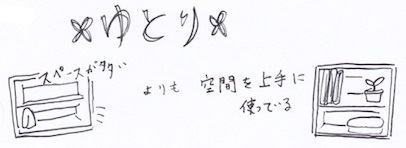 ゆとり
スペースが多い
よりも
空間を上手に
使っている